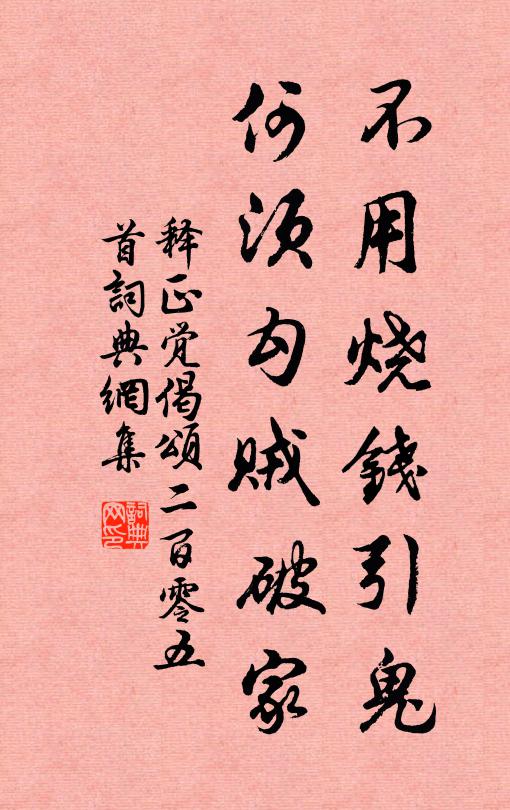 不用烧錢引鬼
何须勾贼破家
释正觉偈頌二百零五
首詞典網集
詞典网印